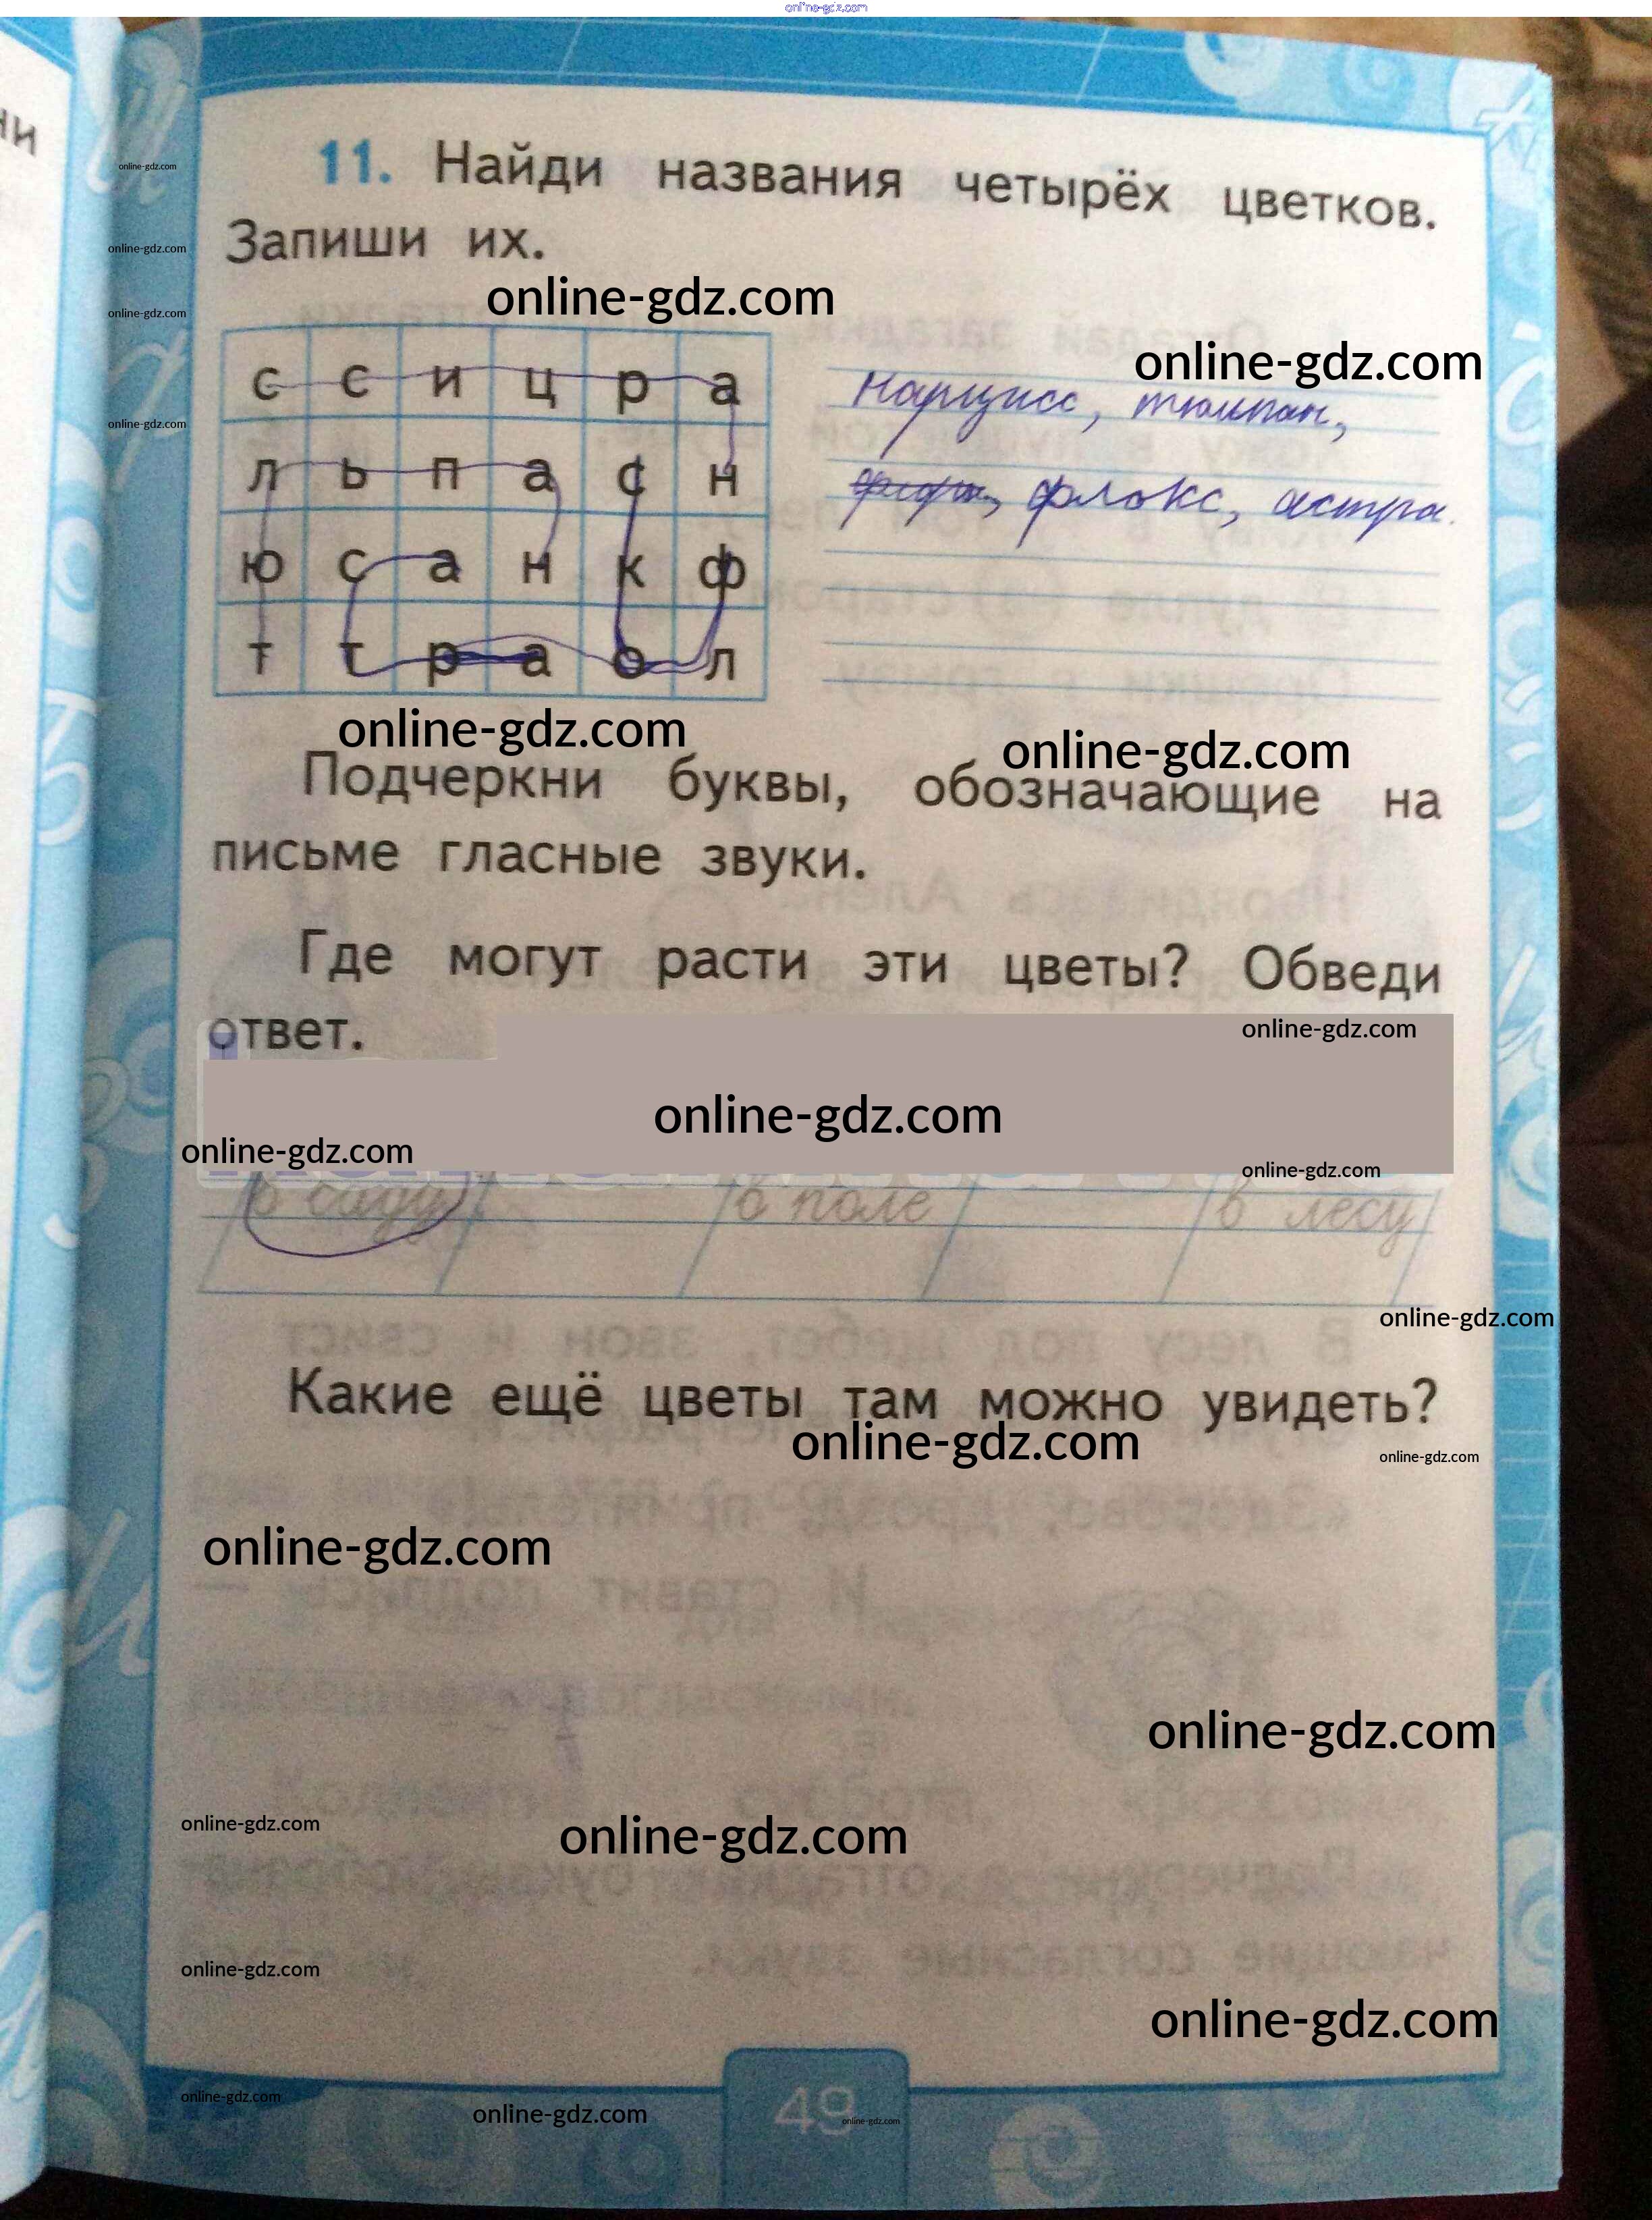 online-gdz.com
ни
11. Найди названия четырёх цветков.
Запиши их.
online-gdz.com
online-gdz.com
online-gdz.com
online-gdz.com
online-gdz.com
online-gdz.com
с с и ц р а
л ь п а с н
ю с а н к ф
т т р а о л
нарцисс, тюльпан,
флокс, астра.
online-gdz.com
online-gdz.com
Подчеркни буквы, обозначающие на
письме гласные звуки.
Где могут расти эти цветы? Обведи
ответ.
online-gdz.com
online-gdz.com
online-gdz.com
online-gdz.com
в саду в поле в лесу
online-gdz.com
Какие ещё цветы там можно увидеть?
online-gdz.com
online-gdz.com
online-gdz.com
online-gdz.com
online-gdz.com
online-gdz.com
online-gdz.com
online-gdz.com
online-gdz.com
online-gdz.com
49
online-gdz.com